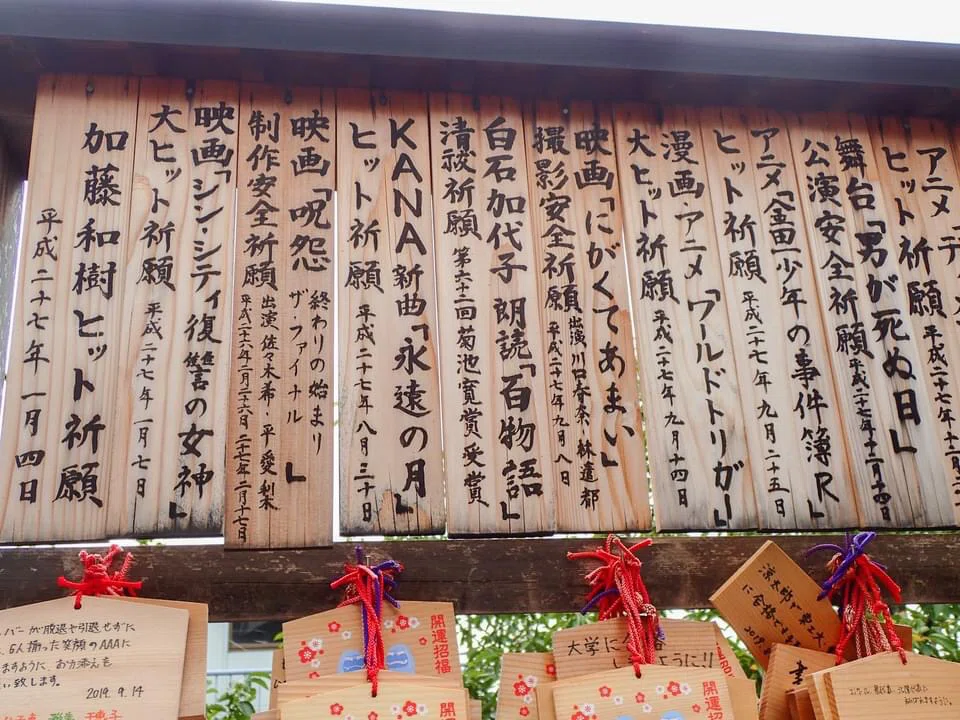 アニメ「デ
ヒット祈願 平成二十七年十
舞台「男が死ぬ日」
公演安全祈願 平成二十七年十二月十四日
アニメ「金田一少年の事件簿R」
ヒット祈願 平成二十七年九月二十五日
漫画アニメ「ワールドトリガー」
大ヒット祈願 平成二十七年九月十四日
映画「にがくてあまい」
撮影安全祈願 出演 川口春奈・林遣都
平成二十七年九月八日
白石加代子 朗読「百物語」
清祓祈願 第六十二回菊池寛賞受賞
KANA新曲「永遠の月」
ヒット祈願 平成二十七年八月三十日
映画「呪怨 終わりの始まり
ザ・ファイナル」
制作安全祈願 出演 佐々木希・平 愛梨
平成二十六年二月二十六日 二十七年二月十七日
映画「シン・シティ 復讐の女神」
大ヒット祈願 平成二十七年一月七日
加藤和樹ヒット祈願
平成二十七年一月四日
バーが脱退や引退せずに
6人揃った笑顔のAAAに
ますように、お力添えを
い致します。
2019.9.14
開運招福
大学に合
ように!!
開運招